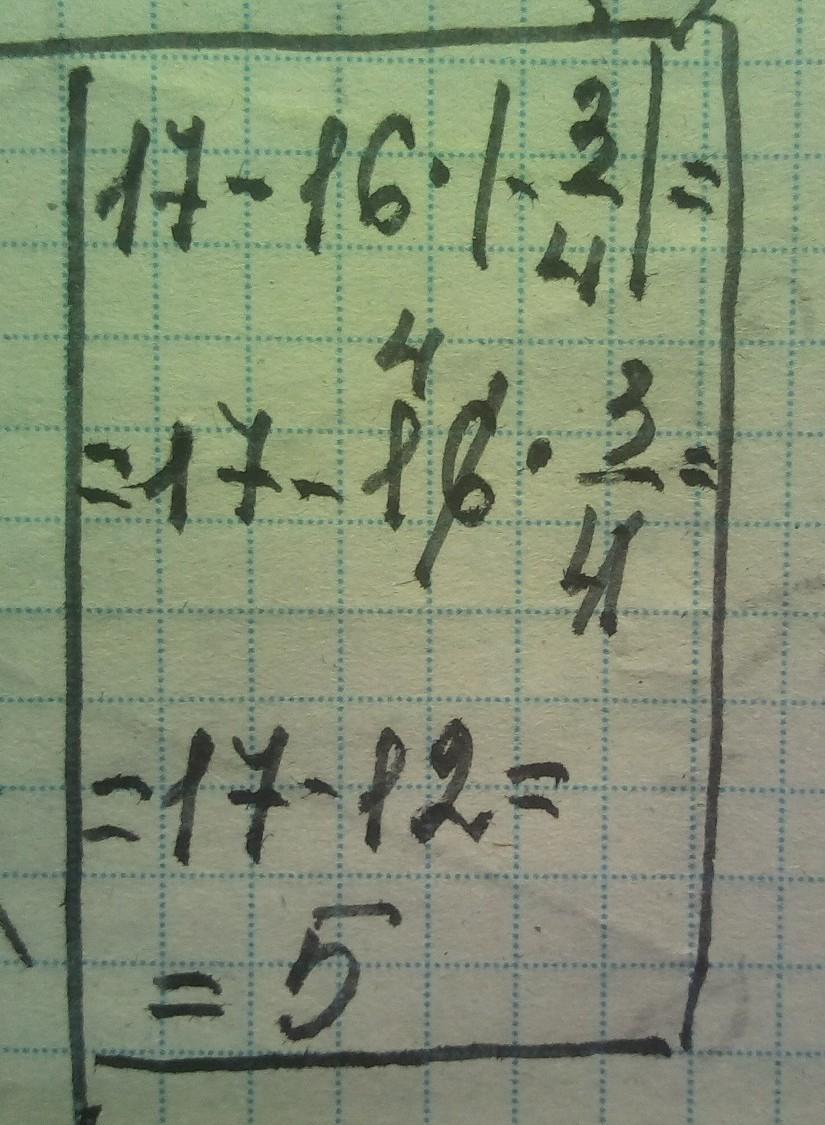 17 - 16 · |-3/4| =
4
= 17 - 16 · 3/4 =
= 17 - 12 =
= 5